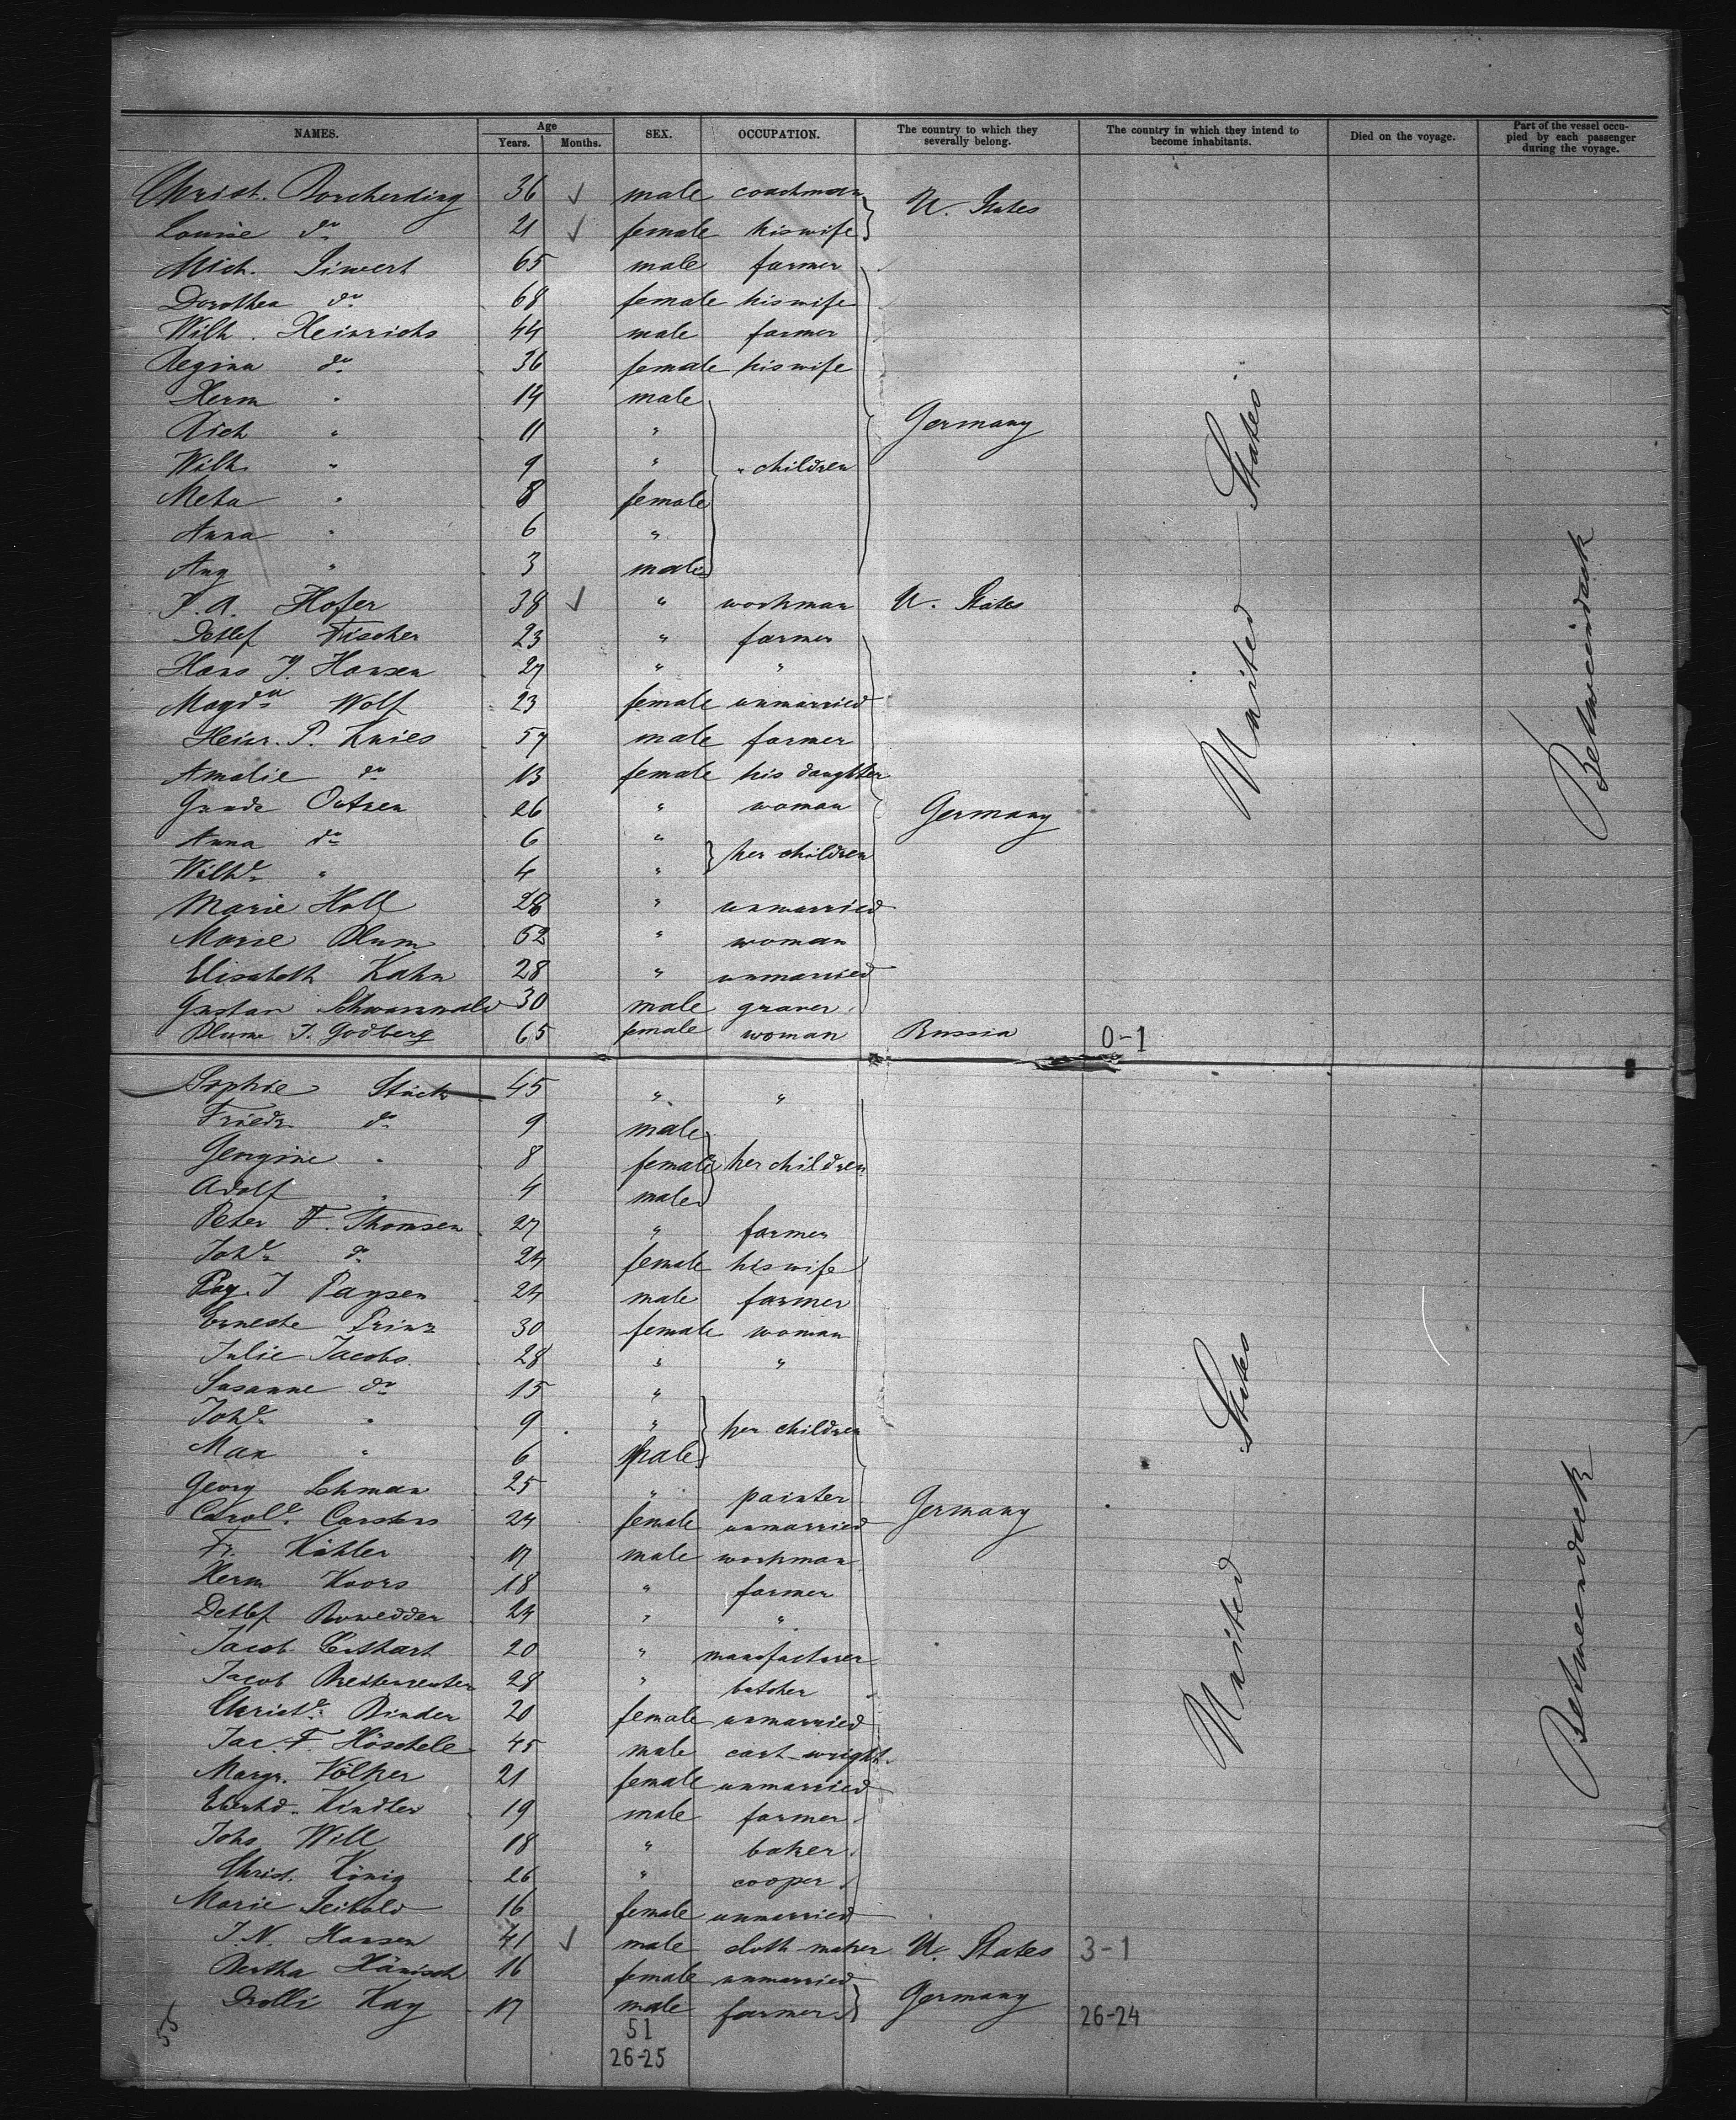 NAMES. Age Years. Months. SEX. OCCUPATION. The country to which they severally belong. The country in which they intend to become inhabitants. Died on the voyage. Part of the vessel occupied by each passenger during the voyage.
Christ. Borcherding 36 ✓ male coachman U. States
Louise do 21 ✓ female his wife
Mich. Siwert 65 male farmer
Dorothea do 68 female his wife
Wilh. Heinrichs 44 male farmer
Regina do 36 female his wife
Herm " 14 male
Rich " 11 " Germany
Wilh. " 9 " " children
Meta " 8 female
Anna " 6 "
Aug " 3 male
P. A. Hofer 38 ✓ " workman U. States
Detlef Fischer 23 " farmer
Hans J. Hansen 27 " "
Magda Wolf 23 female unmarried
Heinr. P. Knies 57 male farmer
Amalie do 13 female his daughter
Gunde Outzen 26 " woman Germany
Anna do 6 "
Wilhe " 4 " her children
Marie Holl 28 " unmarried
Marie Blum 62 " woman
Elisabeth Kahn 28 " unmarried
Gustav Schwarzwald 30 male graver
Blume J. Godberg 65 female woman Russia 0-1
United States
Betweendeck
Sophie Stück 45 " "
Friedr. do 9 male
Georgine " 8 female her children
Adolf " 4 male
Peter F. Thomsen 27 " farmer
Johe do 24 female his wife
Pay. J Paysen 24 male farmer
Erneste Prinz 30 female woman
Julie Jacobs 28 " "
Susanne do 15 "
Johe " 9 " her children
Max " 6 male
Georg Lehman 25 " painter Germany
Carole Carstens 24 female unmarried
Fr. Köhler 17 male workman
Herm Koors 18 " farmer
Detlef Ruwedder 24 " "
Jacob 20 " manufacturer
Jacob Breitenreuter 28 " butcher
Christe Binder 20 female unmarried
Jac. F. Höschele 45 male cart-wright
Margr. Völker 21 female unmarried
Eberhd. Kindler 19 male farmer
Johs Will 18 " baker
Christ. König 26 " cooper
Marie Seibold 16 female unmarried
J. N. Hansen 41 ✓ male cloth-maker U. States 3-1
Bertha Hänisch 16 female unmarried Germany
Kay 17 male farmer 26-24
United States
Betweendeck
55 51
26-25